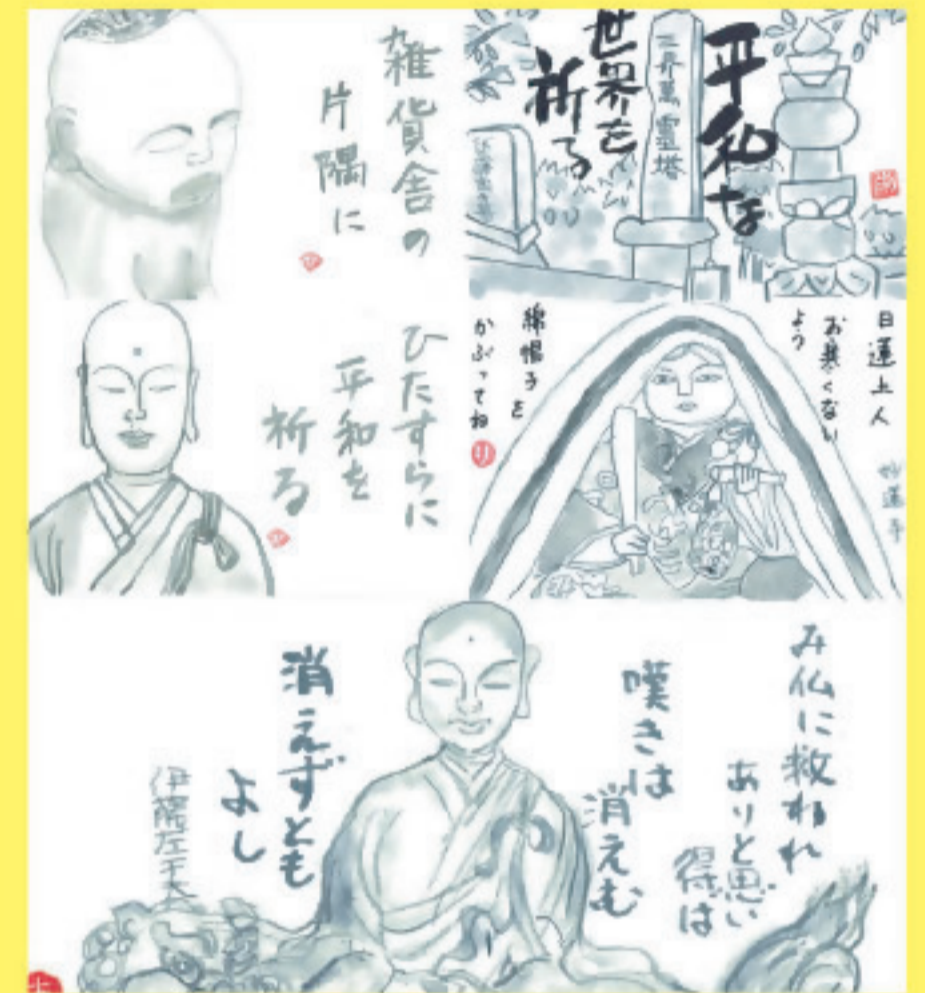 平和な
世界を
祈る
三界萬霊塔
雑貨舎の
片隅に
日蓮上人
お寒くない
よう
綿帽子を
かぶってね
妙蓮寺
ひたすらに
平和を
祈る
み仏に救われ
ありと思い
得ば
嘆きは
消えむ
消えずとも
よし
伊藤左千夫